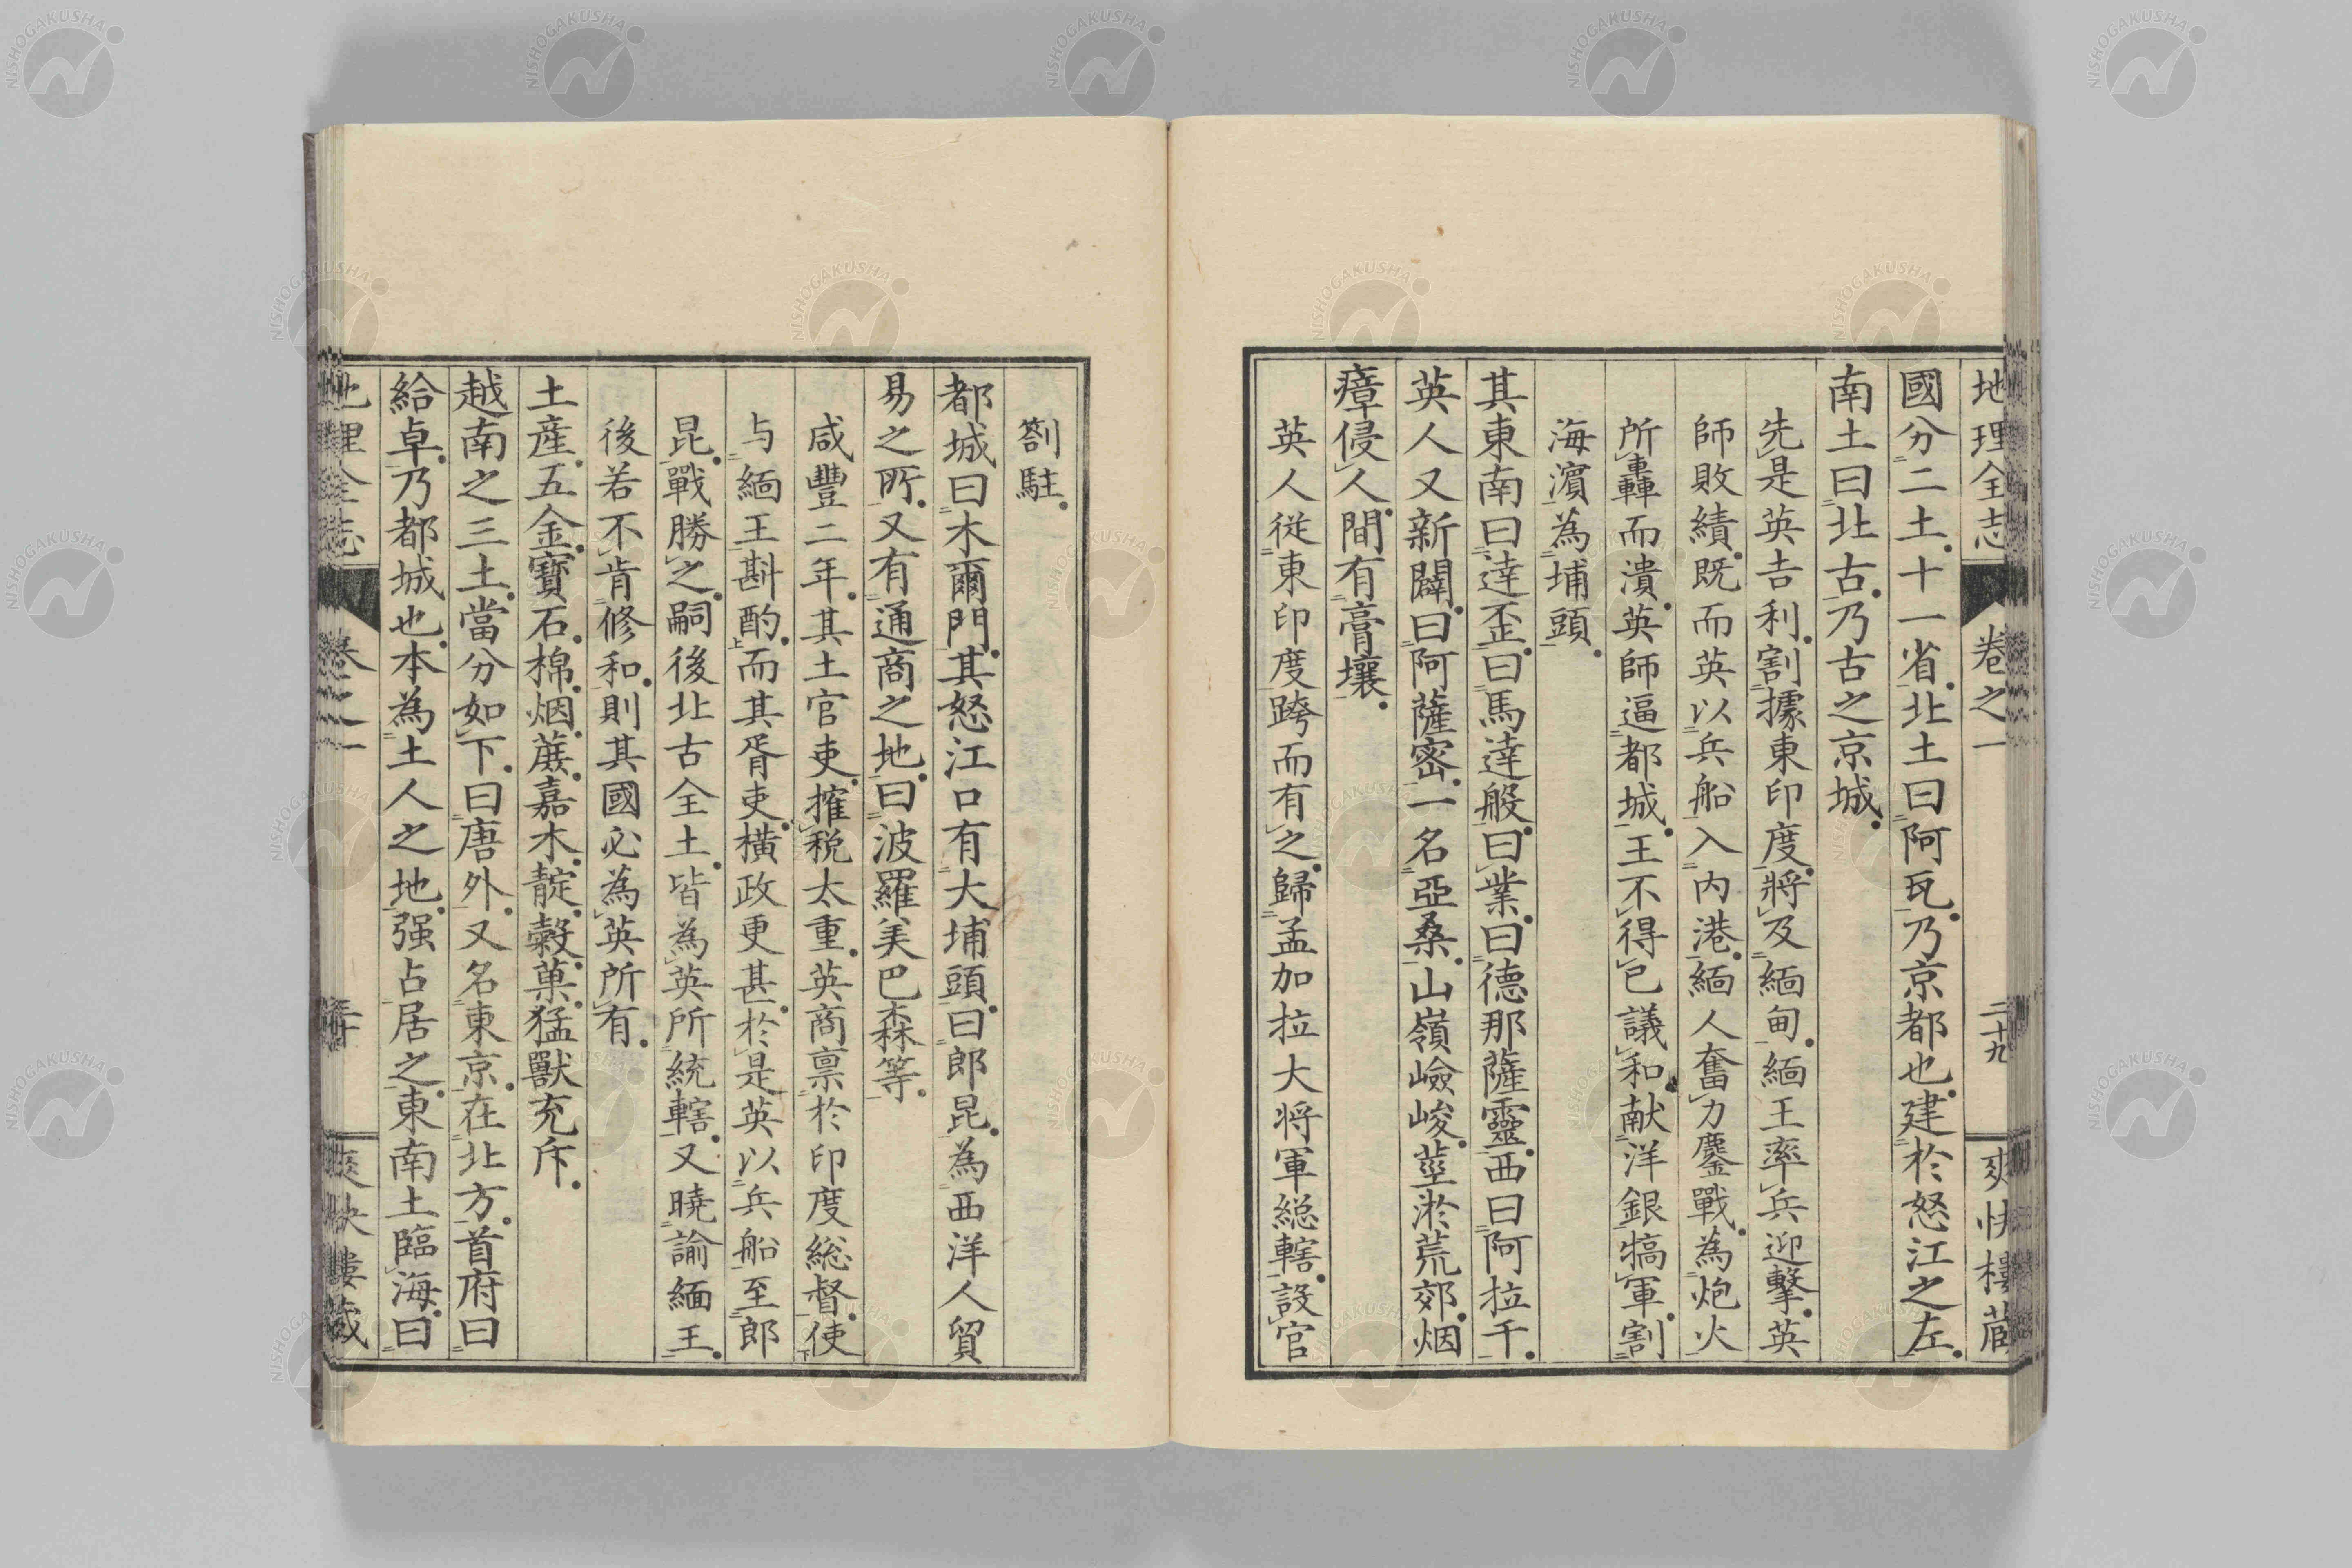 地理全志 卷之一 二十九 爽快樓藏
國分二土。十一省。北土曰阿瓦。乃京都也。建於怒江之左。
南土曰北古。乃古之京城。
先是英吉利。割據東印度。將及緬甸。緬王率兵迎擊。英
師敗績。既而英以兵船入內港。緬人奮力鏖戰。為炮火
所轟而潰。英師逼都城。王不得已議和。献洋銀犒軍。割
海濵為埔頭。
其東南曰達歪。曰馬達般。曰業。曰德那薩靈。西曰阿拉干。
英人又新闢。曰阿薩密。一名亞桑。山嶺嶮峻。莖淤荒郊。烟
瘴侵人。間有膏壤。
英人從東印度跨而有之。歸孟加拉大将軍総轄。設官
劄駐。
都城曰木爾門。其怒江口有大埔頭。曰郎昆。為西洋人貿
易之所。又有通商之地。曰波羅美巴森等。
咸豐二年。其土官吏。搉税太重。英商禀於印度総督。使
与緬王斟酌。而其胥吏。橫政更甚。於是英以兵船至郎
昆。戰勝之。嗣後北古全土。皆為英所統轄。又曉諭緬王。
後若不肯修和。則其國必為英所有。
土産。五金。寶石。棉。烟。蔗。嘉木。靛。穀。菓。猛獸充斥。
越南之三土。當分如下。曰唐外。又名東京。在北方。首府曰
給卓。乃都城也。本為土人之地。强占居之。東南土臨海。曰
地理全志 卷之一 三十 爽快樓藏
NISHOGAKUSHA